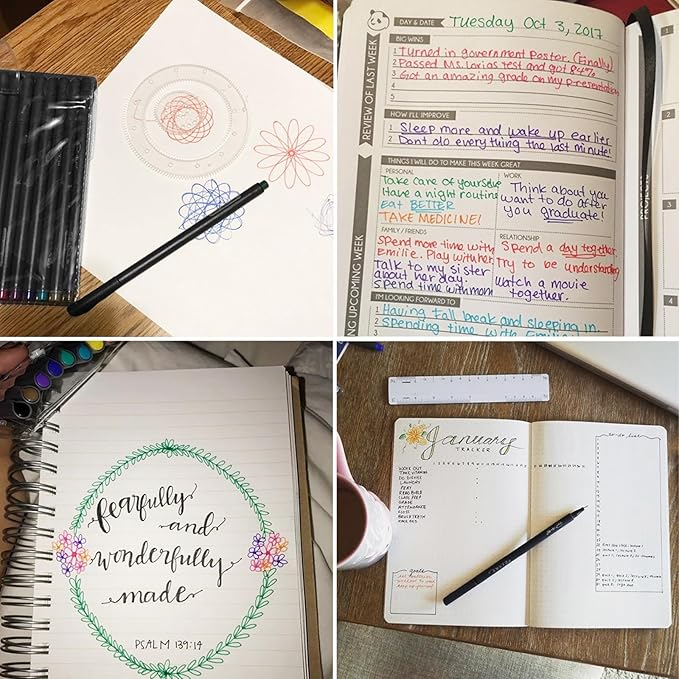 DAY & DATE Tuesday Oct 3, 2017
REVIEW OF LAST WEEK
BIG WINS
1 Turned in government Poster. (Finally)
2 Passed Ms. Lorias test and got 84%
3 Got an amazing grade on my presentation
4
5
HOW I'LL IMPROVE
1 Sleep more and wake up earlier
2 Don't do everything the last minute!
THINGS I WILL DO TO MAKE THIS WEEK GREAT
UPCOMING WEEK
PERSONAL
Take care of yourself
Have a night routine
Eat BETTER
TAKE MEDICINE!
WORK
Think about you
want to do after
you graduate!
FAMILY / FRIENDS
Spend more time with
Emilie. Play with her.
Talk to my sister
about her day.
Spend time with mom
RELATIONSHIP
Spend a day together.
Try to be understanding
Watch a movie
together.
I'M LOOKING FORWARD TO
1 Having fall break and sleeping in.
2 Spending time with
PROJECTS
2
3
4
fearfully
and
wonderfully
made
PSALM 139:14
January
TRACKER
WORK OUT
TAKE VITAMINS
DO DISHES
LAUNDRY
READ BIBLE
CLASS PREP
GRADE
ATTENDANCE
FLOSS
BRUSH TEETH
MAKE BED
to-do list
goals